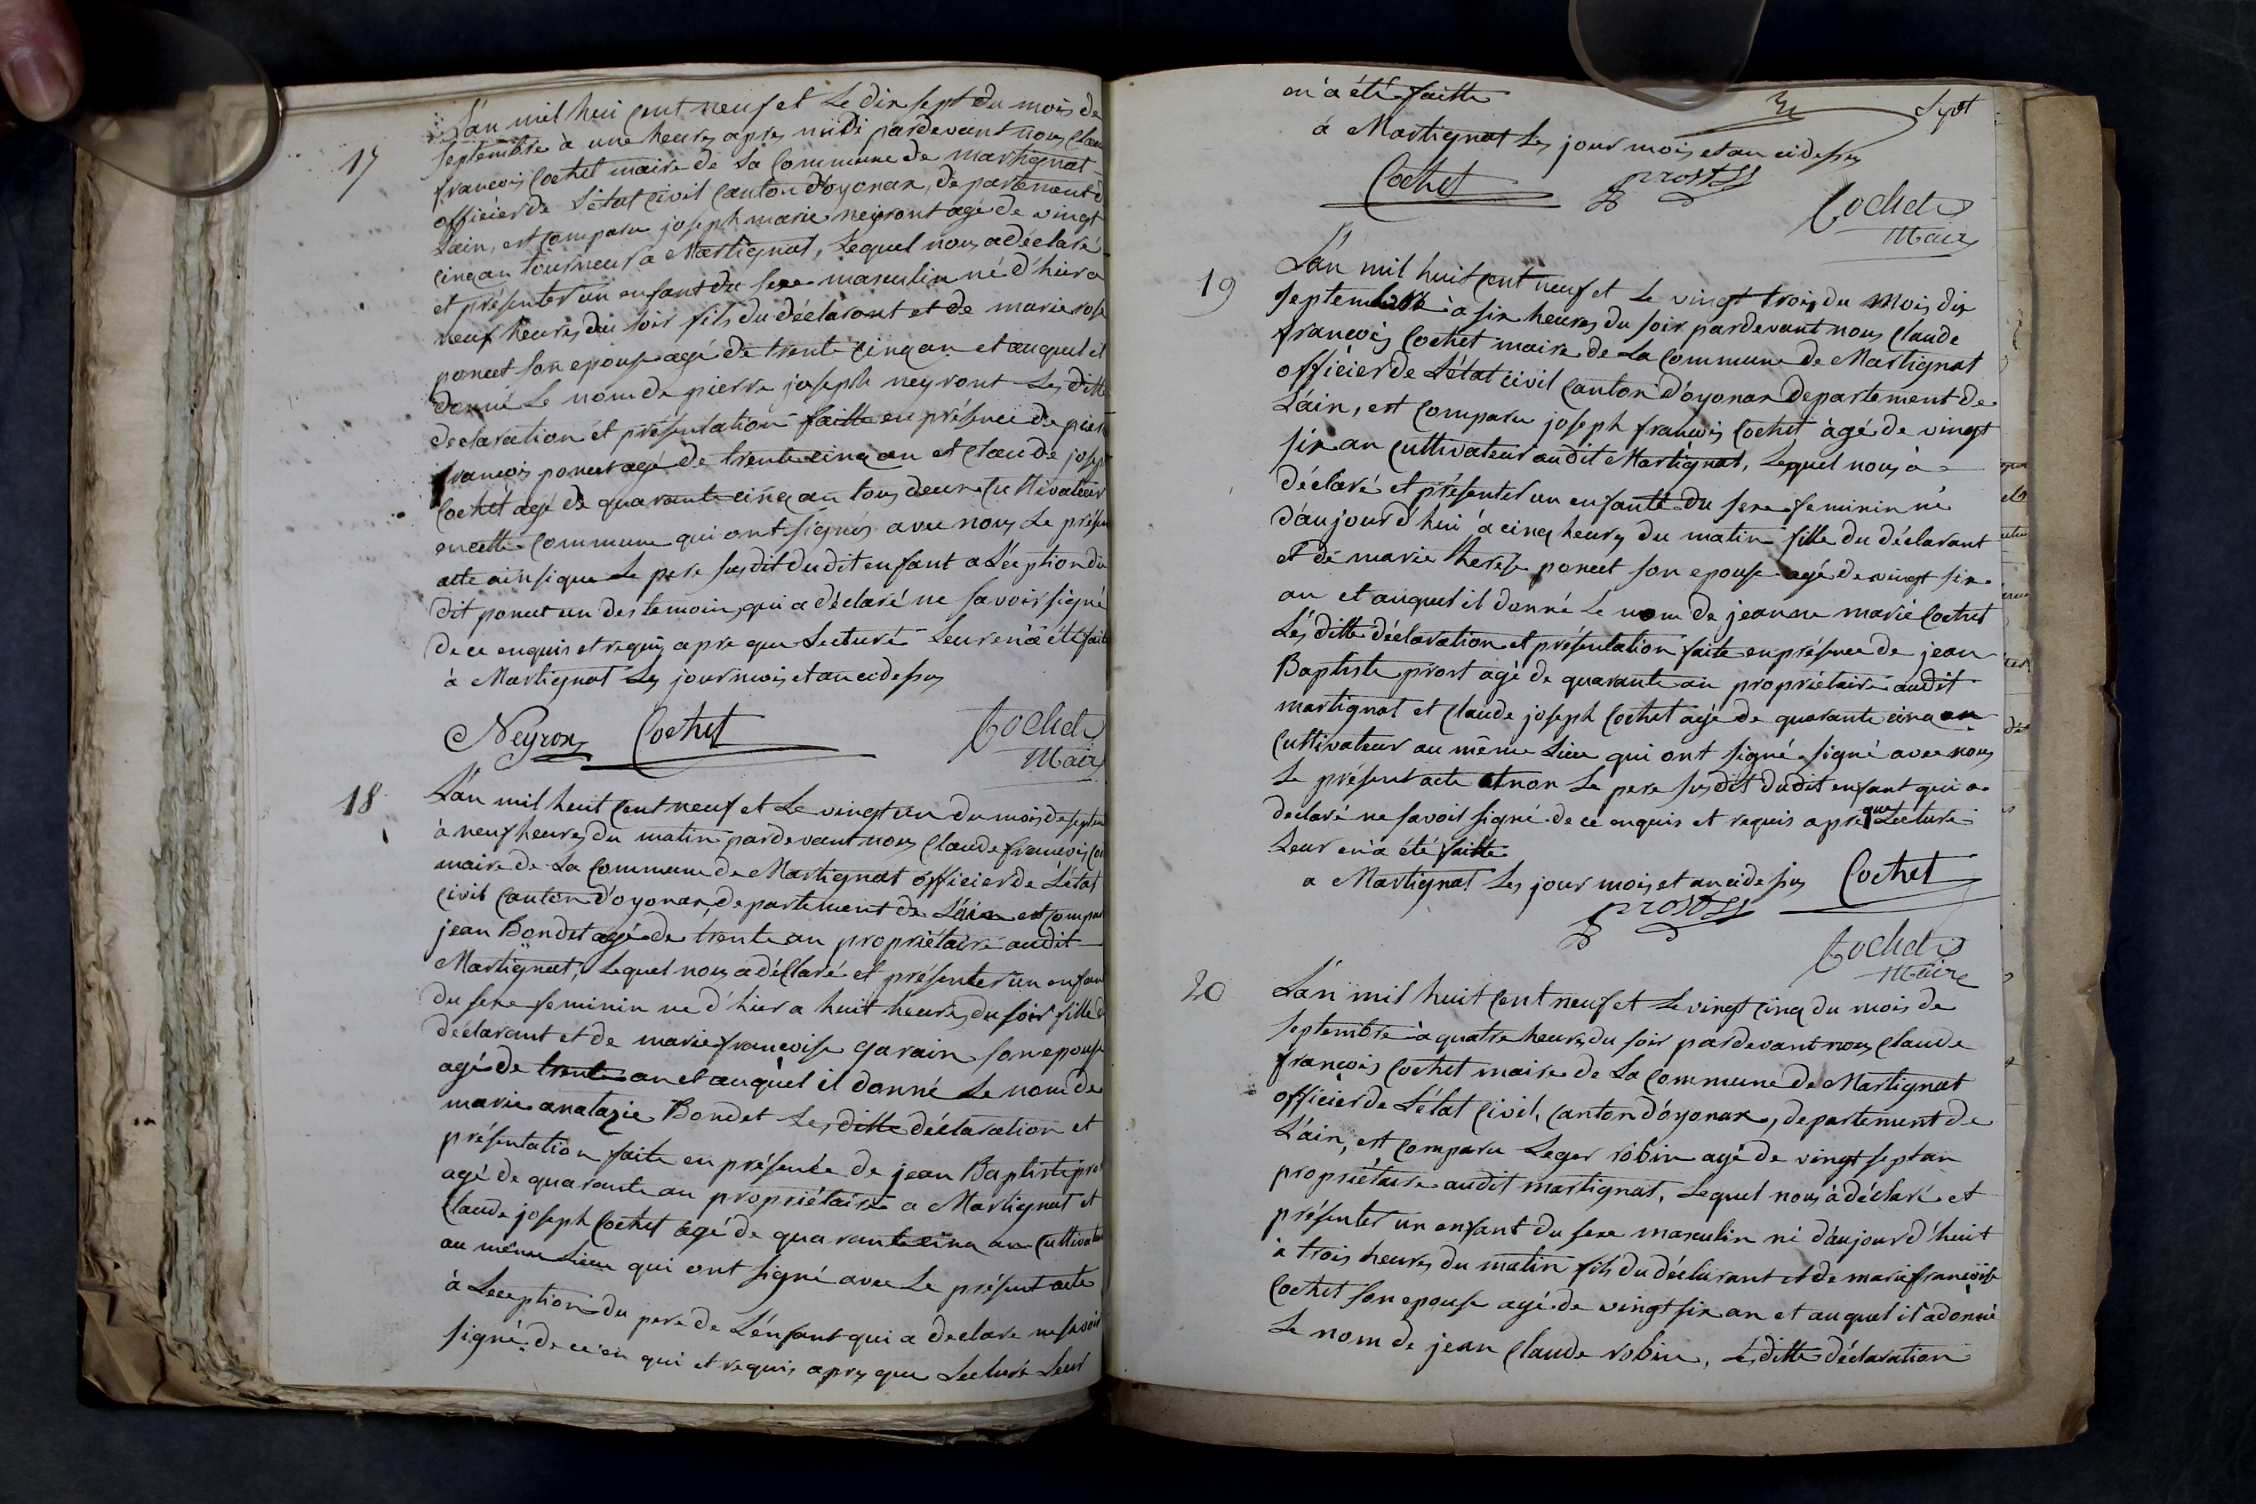 17
L'an mil hui cent neuf et Le dix sept du mois de
septembre à une heures apres midi pardevant nous Clau
francois Cochet maire de La Commune de martignat
officier de L'état Civil Canton d'oyonax, département d
L'ain, est Comparu joseph marie neyront agé de vingt
cinq an tourneur a Martignat, Lequel nous a déclaré
et présenter un enfant du sexe masculin né d'hier a
neuf heures du soir fils du déclarant et de marie rose
poncet son epouse agé de trente cinq an et auquel il
donné Le nom de pierre joseph neyront Les ditte
declaration et présentation faitte en présence de pierre
francois poncet agé de trente cinq an et Claude joseph
Cochet agé de quarante cinq an tous deux Cultivateur
en cette Commune qui ont signés avec nous Le présen
acte ainsi que Le pere susdit dudit enfant a L'éxception du
dit poncet un des temoins qui a déclaré ne savoir signé
de ce enquis et requis apre que Lecture Leur en a été faite
à Martignat Les jour mois et an cidessus
Neyron Cochet Cochet
Maire
18
L'an mil huit Cent neuf et Le vingt un du mois de septem
à neuf heures du matin pardevant nous Claude francois Co
maire de La Commune de Martignat officier de L'état
Civil Canton d'oyonax departement de L'ain est Compar
jean Bondet agé de trente an propriétaire audit
Martignat, Lequel nous a déclaré et présenter un enfan
du sexe feminin ne d'hier a huit heures du soir fille d
déclarant et de marie francoise garain son epouse
agé de trente an et auquel il donné Le nom de
marie anatazie Bondet Les ditte déclaration et
présentation faite en présence de jean Baptiste pro
agé de quarante an propriétaire a Martignat et
Claude joseph Cochet agé de quarante cinq an Cultivate
au même Lieu qui ont signé avec Le présent acte
à Lexeption du pere de L'enfant qui a declare ne savoir
signé de ce en qui et requis apres que Lecture Leur
en a été faitte
à Martignat Les jour mois et an cidessus
Sept
Cochet prost
Cochet
Maire
19
L'an mil huit Cent neuf et Le vingt trois du Mois dix
septembre à six heures du soir pardevant nous Claude
francois Cochet maire de La Commune de Martignat
officier de L'état civil Canton d'oyonax departement de
L'ain, est Comparu joseph francois Cochet àgé de vingt
six an Cultivateur audit Martignat, Lequel nous à
déclaré et présenter un enfante du sexe feminin né
d'aujourd'hui à cinq heures du matin fille du déclarant
et de marie therese poncet son epouse agé de vingt six
an et auquel il donné Le nom de jeanne marie Cochet
Les ditte déclaration et présentation faite en présence de jean
Baptiste prost agé de quarante an propriétaire audit
martignat et Claude joseph Cochet agé de quarante cinq an
Cultivateur au même Lieu qui ont signé signé avec nous
Le présent acte et non Le pere susdit dudit enfant qui a
declaré ne savoir signé de ce enquis et requis apre que Lecture
Leur en a été faitte
a Martignat Les jour mois et an cidessus Cochet
prost
Cochet
Maire
20
L'an mil huit Cent neuf et Le vingt cinq du mois de
septembre à quatre heures du soir pardevant nous Claude
francois Cochet maire de La Commune de Martignat
officier de L'état Civil, Canton d'oyonax, departement de
L'ain, est Comparu Leger robin agé de vingt sept an
propriétaire audit martignat, Lequel nous à déclaré et
présenter un enfant du sexe masculin né d'aujourd'huit
à trois heures du matin fils du déclarant et de marie francoise
Cochet son epouse agé de vingt six an et auquel il a donné
Le nom de jean Claude robin, Les ditte déclaration